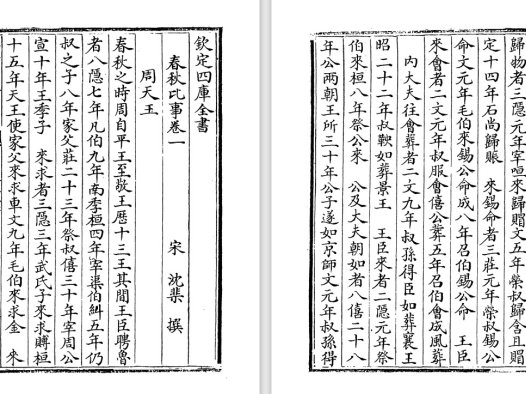 欽定四庫全書
春秋比事卷一
宋 沈棐 撰
周天王
春秋之時周自平王至敬王歷十三王其間王臣聘魯
者八隱七年凡伯九年南季桓四年宰渠伯糾五年仍
叔之子八年家父莊二十三年祭叔僖三十年宰周公
宣十年王季子 來求者三隱三年武氏子來求賻桓
十五年天王使家父來求車文九年毛伯來求金 來
歸物者三隱元年宰咺來歸賵文五年榮叔歸含且賵
定十四年石尚歸脤 來錫命者三莊元年榮叔錫公
命文元年毛伯來錫公命成八年召伯錫公命 王臣
來會者二文元年叔服會僖公葬五年召伯會成風葬
內大夫往會葬者二文九年叔孫得臣如葬襄王
昭二十二年叔鞅如葬景王 王臣來者二隱元年祭
伯來桓八年祭公來 公及大夫朝如者八僖二十八
年公兩朝王所三十年公子遂如京師文元年叔孫得